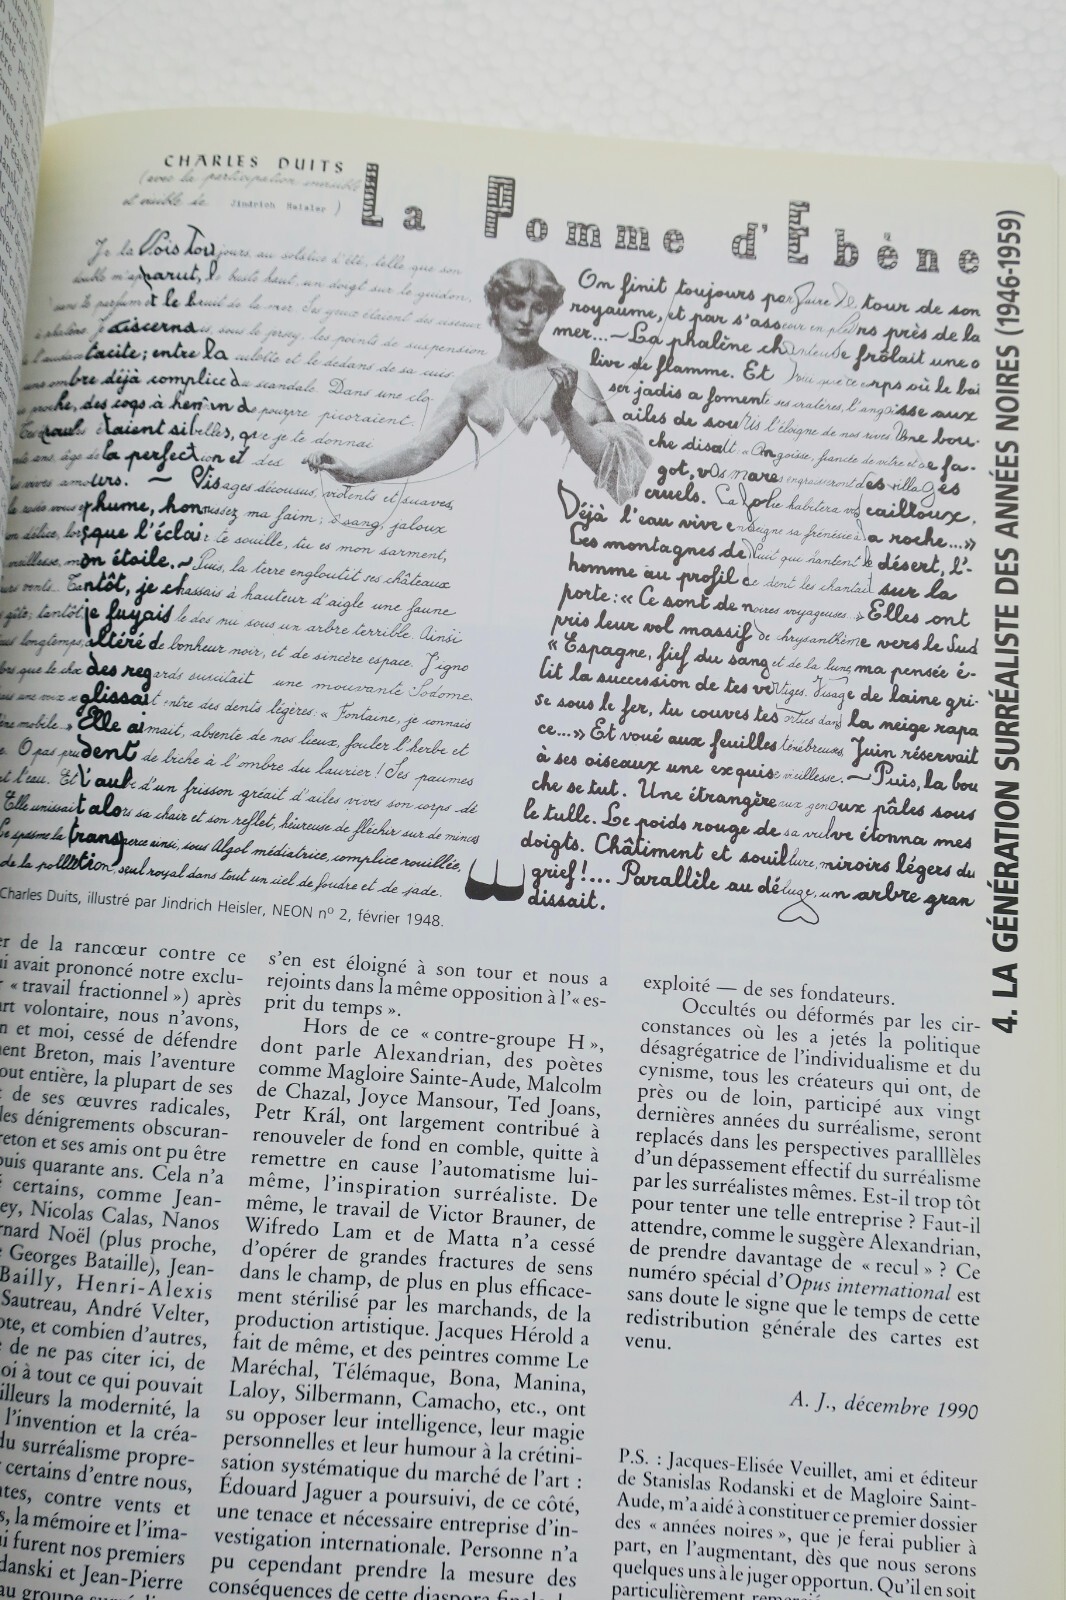 CHARLES DUITS
(avec la participation invisible
et visible de Jindrich Heisler)
La Pomme d'Ebène
Je la Vois Toujours, au solstice d'été, telle que son
double m'apparut, le buste haut, un doigt sur le guidon,
dans le parfum et le bruit de la mer. Ses yeux étaient des oiseaux
discerna sous le proey, les points de suspension
tacite; entre la culotte et le dedans de sa cuis
ombre déjà complice du scandale. Dans une clo
che, des coqs à hemin de pourpre picoraient.
étaient si belles, que je te donnai
ans, âge de la perfection et des
vives amours. — Visages décousus, violents et suaves,
hume, honnissez ma faim; ô sang, jaloux
délice, lorsque l'éclair te souille, tu es mon sarment,
mon étoile. ~ Puis, la terre engloutit ses châteaux
vents. Tantôt, je chassais à hauteur d'aigle une faune
gîte; tantôt je fuyais le des nu sous un arbre terrible. Ainsi
longtemps, altéré de bonheur noir, et de sincère espace. J'igno
que le choc des regards suscitait une mouvante Sodome.
une voix glissait entre des dents légères: « Fontaine, je connais
mobile. » Elle aimait, absente de nos lieux, fouler l'herbe et
O pas prudent de biche à l'ombre du laurier! Ses paumes
l'eau. Et l'aube d'un frisson gréait d'ailes vives son corps de
Elle unissait alors sa chair et son reflet, heureuse de fléchir sur de minces
spasme la transperce ainsi, sous Algol médiatrice, complice rouillée,
de la pollution, seul royal dans tout un ciel de foudre et de jade.
On finit toujours par faire le tour de son
royaume, et par s'asseoir en pleurs près de la
mer...~La phalène chanteuse frôlait une o
live de flamme. Et que ce corps où le bai
ser jadis a fomenté ses cratères, l'angoisse aux
ailes de souris l'éloigne de nos rives. Une bou-
che disait. « Angoisse, fiancée de vitre et de fa-
got, vos mares engraisseront des villages
cruels. La folie habitera vos cailloux.
Déjà l'eau vive enseigne sa frénésie à la roche...»
Les montagnes de nuit qui hantent le désert, l'-
homme au profil de dont les chantait sur la
porte: « Ce sont de noires voyageuses. » Elles ont
pris leur vol massif de chrysanthème vers le Sud
« Espagne, fief du sang et de la lune, ma pensée é-
lit la succession de tes vertiges. Visage de laine gri-
se sous le fer, tu couves tes orties dans la neige rapa
ce...» Et voué aux feuilles ténébreuses, Juin réservait
à ses oiseaux une exquise vieillesse. ~ Puis, la bou
che se tut. Une étrangère aux genoux pâles sous
le tulle. Le poids rouge de sa vulve étonna mes
doigts. Châtiment et souillure, miroirs légers du
grief!... Parallèle au déluge, un arbre gran
dissait.
Charles Duits, illustré par Jindrich Heisler, NEON nº 2, février 1948.
4. LA GÉNÉRATION SURRÉALISTE DES ANNÉES NOIRES (1946-1959)
er de la rancœur contre ce
ui avait prononcé notre exclu-
« travail fractionnel ») après
art volontaire, nous n'avons,
n et moi, cessé de défendre
ment Breton, mais l'aventure
out entière, la plupart de ses
de ses œuvres radicales,
les dénigrements obscuran-
reton et ses amis ont pu être
puis quarante ans. Cela n'a
certains, comme Jean-
ey, Nicolas Calas, Nanos
rnard Noël (plus proche,
Georges Bataille), Jean-
Bailly, Henri-Alexis
Sautreau, André Velter,
ote, et combien d'autres,
de ne pas citer ici, de
oi à tout ce qui pouvait
illeurs la modernité, la
l'invention et la créa-
du surréalisme propre-
certains d'entre nous,
ntes, contre vents et
s, la mémoire et l'ima-
ui furent nos premiers
danski et Jean-Pierre
au groupe
s'en est éloigné à son tour et nous a
rejoints dans la même opposition à l'« es-
prit du temps ».
Hors de ce « contre-groupe H »,
dont parle Alexandrian, des poètes
comme Magloire Sainte-Aude, Malcolm
de Chazal, Joyce Mansour, Ted Joans,
Petr Král, ont largement contribué à
renouveler de fond en comble, quitte à
remettre en cause l'automatisme lui-
même, l'inspiration surréaliste. De
même, le travail de Victor Brauner, de
Wifredo Lam et de Matta n'a cessé
d'opérer de grandes fractures de sens
dans le champ, de plus en plus efficace-
ment stérilisé par les marchands, de la
production artistique. Jacques Hérold a
fait de même, et des peintres comme Le
Maréchal, Télémaque, Bona, Manina,
Laloy, Silbermann, Camacho, etc., ont
su opposer leur intelligence, leur magie
personnelles et leur humour à la crétini-
sation systématique du marché de l'art :
Édouard Jaguer a poursuivi, de ce côté,
une tenace et nécessaire entreprise d'in-
vestigation internationale. Personne n'a
pu cependant prendre la mesure des
conséquences de cette diaspora
exploité — de ses fondateurs.
Occultés ou déformés par les cir-
constances où les a jetés la politique
désagrégatrice de l'individualisme et du
cynisme, tous les créateurs qui ont, de
près ou de loin, participé aux vingt
dernières années du surréalisme, seront
replacés dans les perspectives paralllèles
d'un dépassement effectif du surréalisme
par les surréalistes mêmes. Est-il trop tôt
pour tenter une telle entreprise ? Faut-il
attendre, comme le suggère Alexandrian,
de prendre davantage de « recul » ? Ce
numéro spécial d'Opus international est
sans doute le signe que le temps de cette
redistribution générale des cartes est
venu.
A. J., décembre 1990
P.S. : Jacques-Elisée Veuillet, ami et éditeur
de Stanislas Rodanski et de Magloire Saint-
Aude, m'a aidé à constituer ce premier dossier
des « années noires », que je ferai publier à
part, en l'augmentant, dès que nous serons
quelques uns à le juger opportun. Qu'il en soit
particulièrement